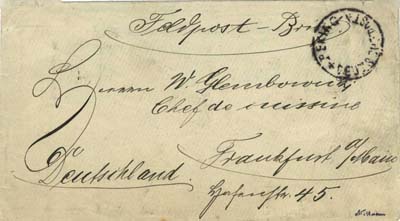 Feldpost-Brief
PEKING
Herrn W. Glembowick
Chef de cuissine
Frankfurt a/Main
Deutschland.
Hafenstr. 45.